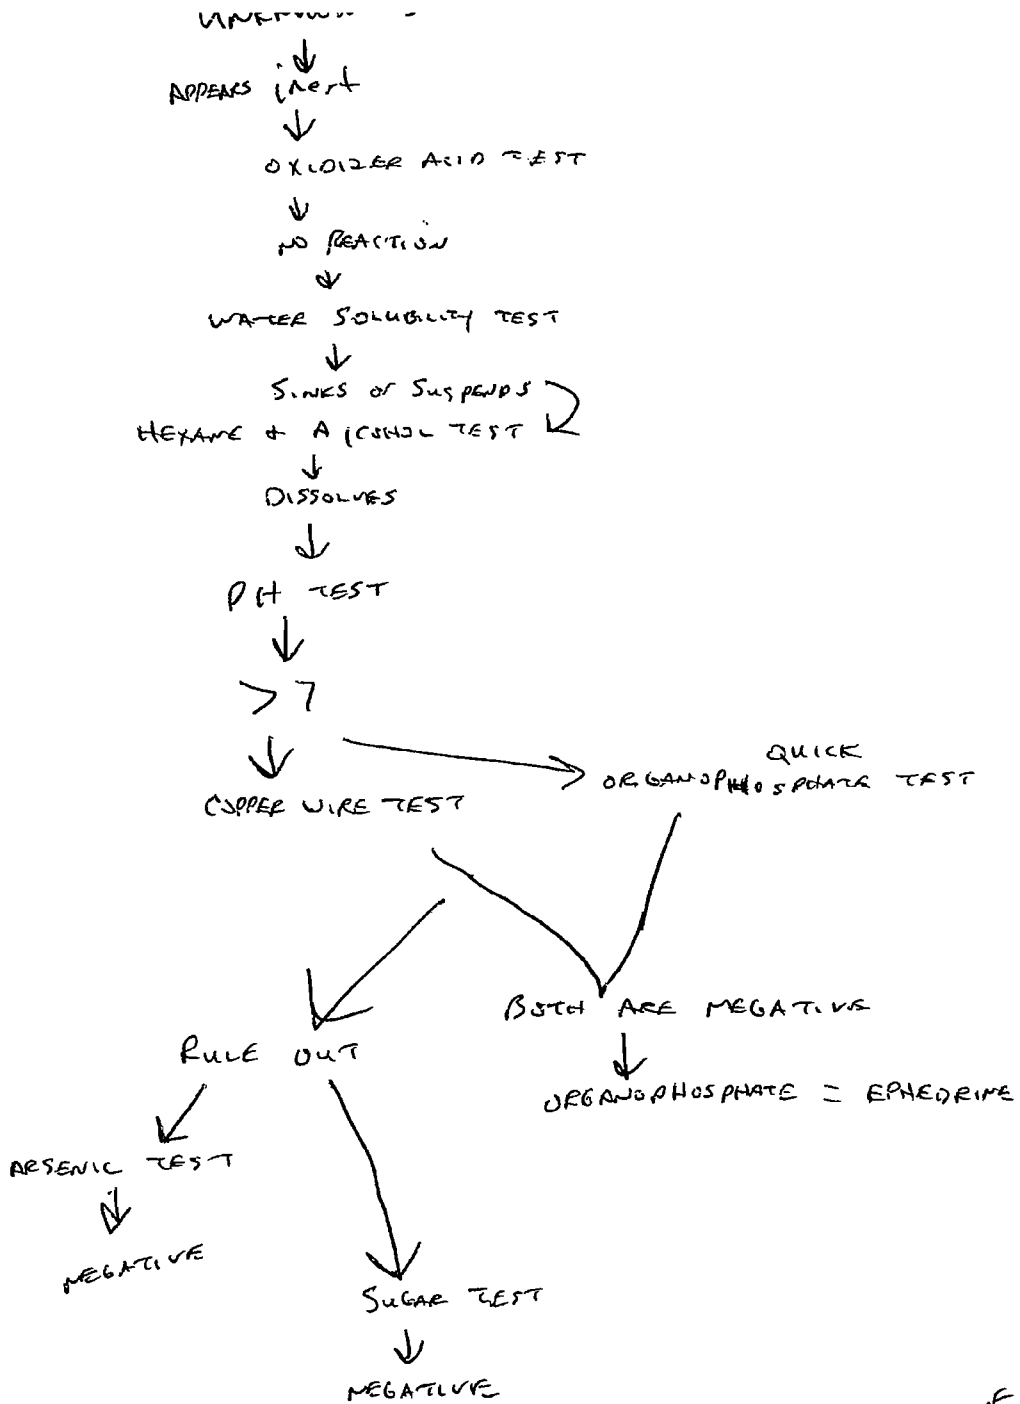 APPEARS inert
OXIDIZER ACID TEST
NO REACTION
WATER SOLUBILITY TEST
SINKS or SUSPENDS
HEXANE + AlCOHOL TEST
DISSOLVES
PH TEST
> 7
QUICK
ORGANOPHHOSPHATE TEST
COPPER WIRE TEST
BOTH ARE NEGATIVE
RULE OUT
ORGANOPHOSPHATE = EPHEDRINE
ARSENIC TEST
NEGATIVE
SUGAR TEST
NEGATIVE